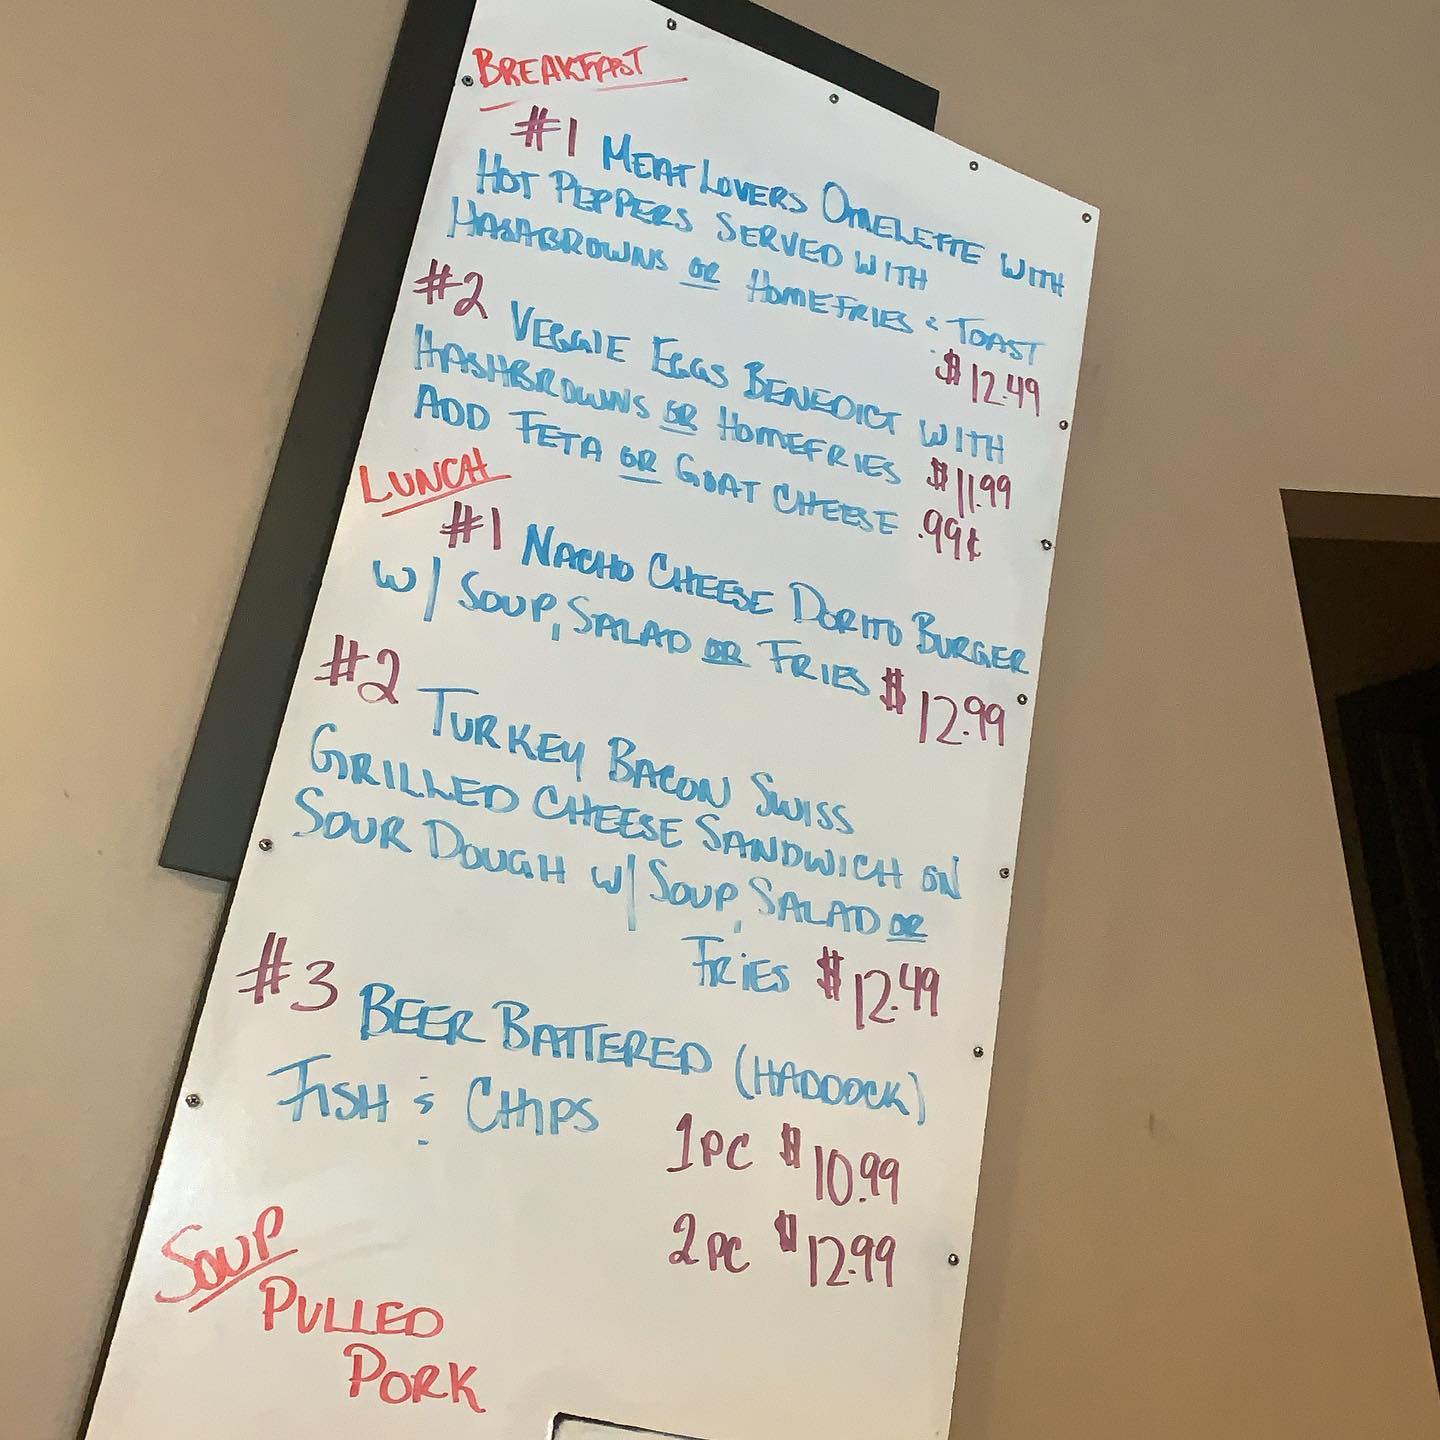 BREAKFAST
#1 MEAT LOVERS OMELETTE WITH
HOT PEPPERS SERVED WITH
HASHBROWNS OR HOMEFRIES & TOAST
$12.49
#2 VEGGIE EGGS BENEDICT WITH
HASHBROWNS OR HOMEFRIES $11.99
ADD FETA OR GOAT CHEESE .99¢
LUNCH
#1 NACHO CHEESE DORITO BURGER
W/ SOUP, SALAD OR FRIES $12.99
#2 TURKEY BACON SWISS
GRILLED CHEESE SANDWICH ON
SOUR DOUGH W/ SOUP, SALAD OR
FRIES $12.49
#3 BEER BATTERED (HADDOCK)
FISH & CHIPS
1PC $10.99
2PC $12.99
SOUP
PULLED
PORK